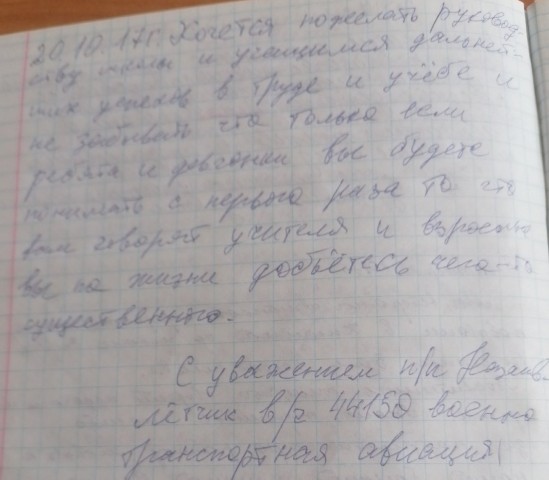 20.10.17г. Хочется пожелать руковод-
ству школы и учащимся дальней-
ших успехов в труде и учёбе и
не забывать что только если
ребята и девчонки вы будете
понимать с первого раза то что
вам говорят учителя и взрослые
вы по жизни добьётесь чего-то
существенного.
С уважением п/п-к
лётчик в/ч 44150 военно
транспортная авиация